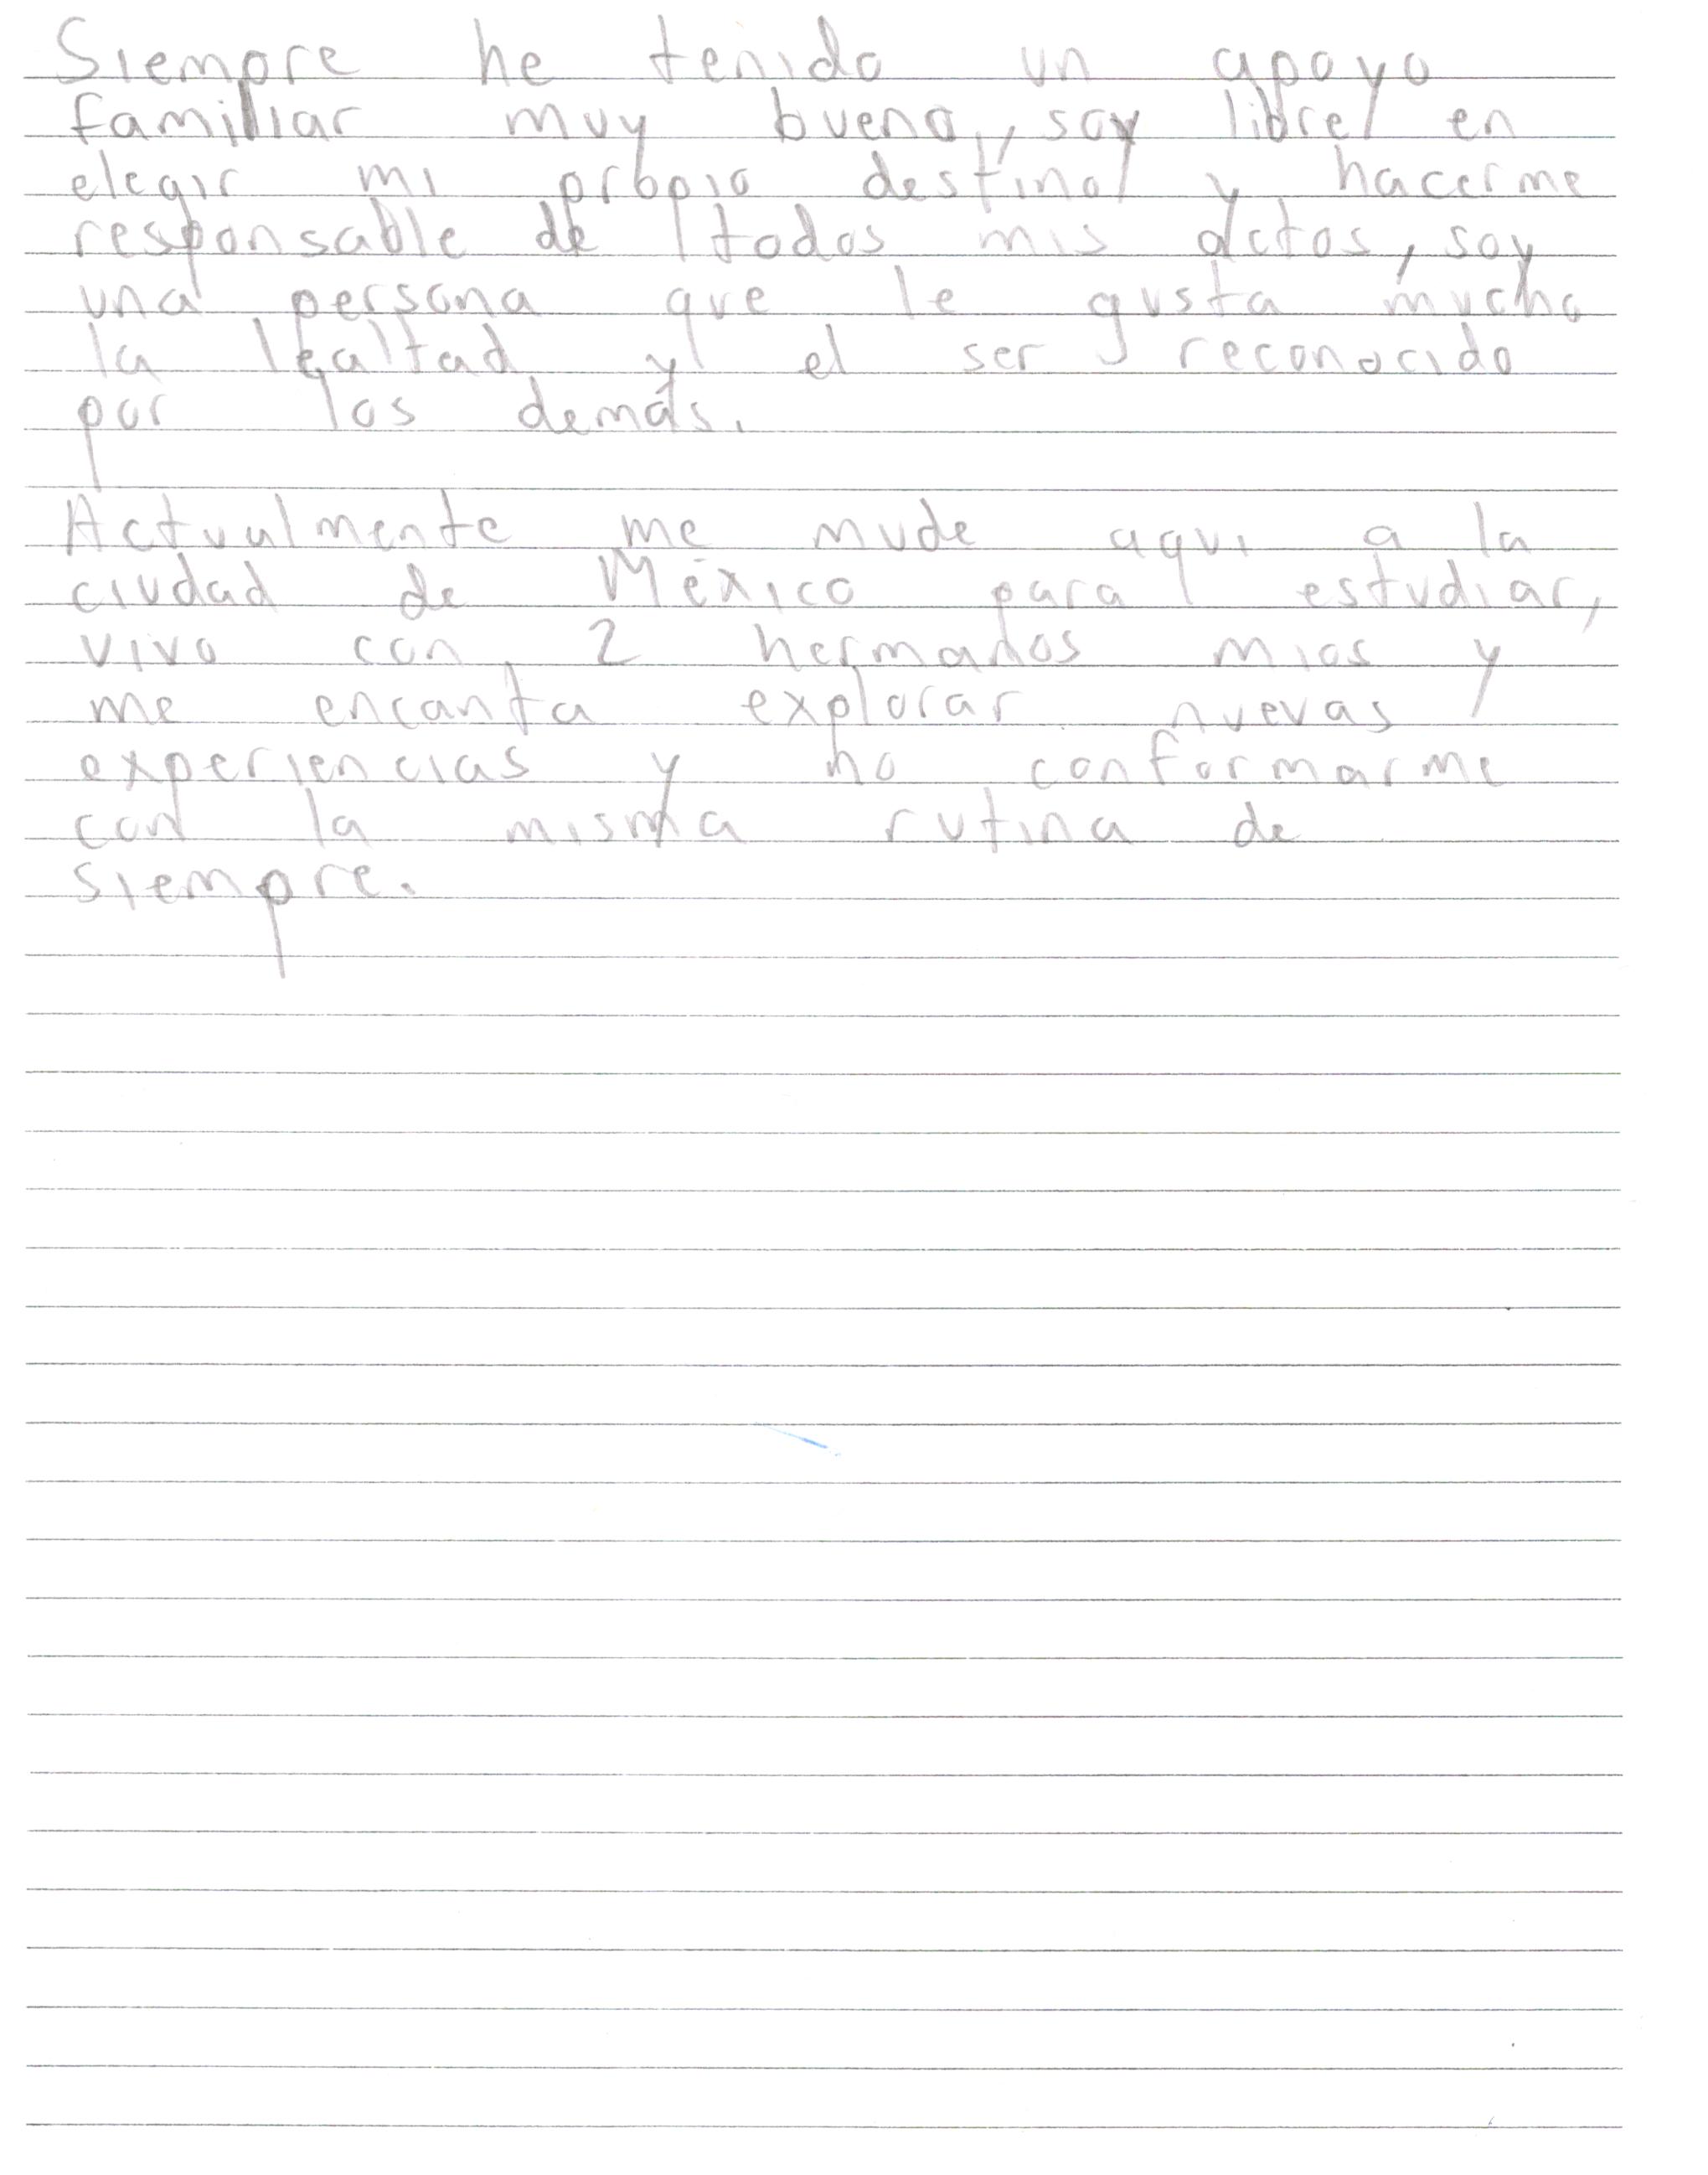 Siempre he tenido un apoyo
familiar muy bueno, soy libre en
elegir mi propio destino y hacerme
responsable de todos mis actos, soy
una persona que le gusta mucho
la lealtad y el ser reconocido
por los demás.
Actualmente me mude aqui a la
ciudad de México para estudiar,
vivo con 2 hermanos mios y
me encanta explorar nuevas
experiencias y no conformarme
con la misma rutina de
siempre.